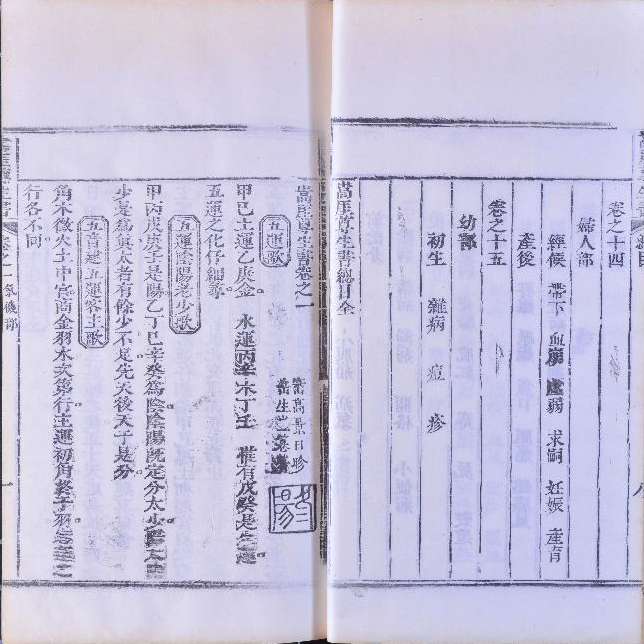 卷之十四
婦人部
經候 帶下 血崩 虛弱 求嗣 妊娠 產育
產後
卷之十五
幼部
初生 雜病 痘 疹
嵩厓尊生書總目全
嵩厓尊生書卷之一
嵩高景日昣
五運歌
甲巳土運乙庚金 水運丙辛木丁壬 惟有戊癸是
五運之化仔細
五運陰陽老少歌
甲丙戊庚壬是陽乙丁巳辛癸為陰陰陽既定分太少陽太
少是為真太者有餘少不足先天後天于是分
五音建五運客土歌
角木徵火土中宮商金羽水次第行主運初角
行各不同
卷之一 氣機部
一